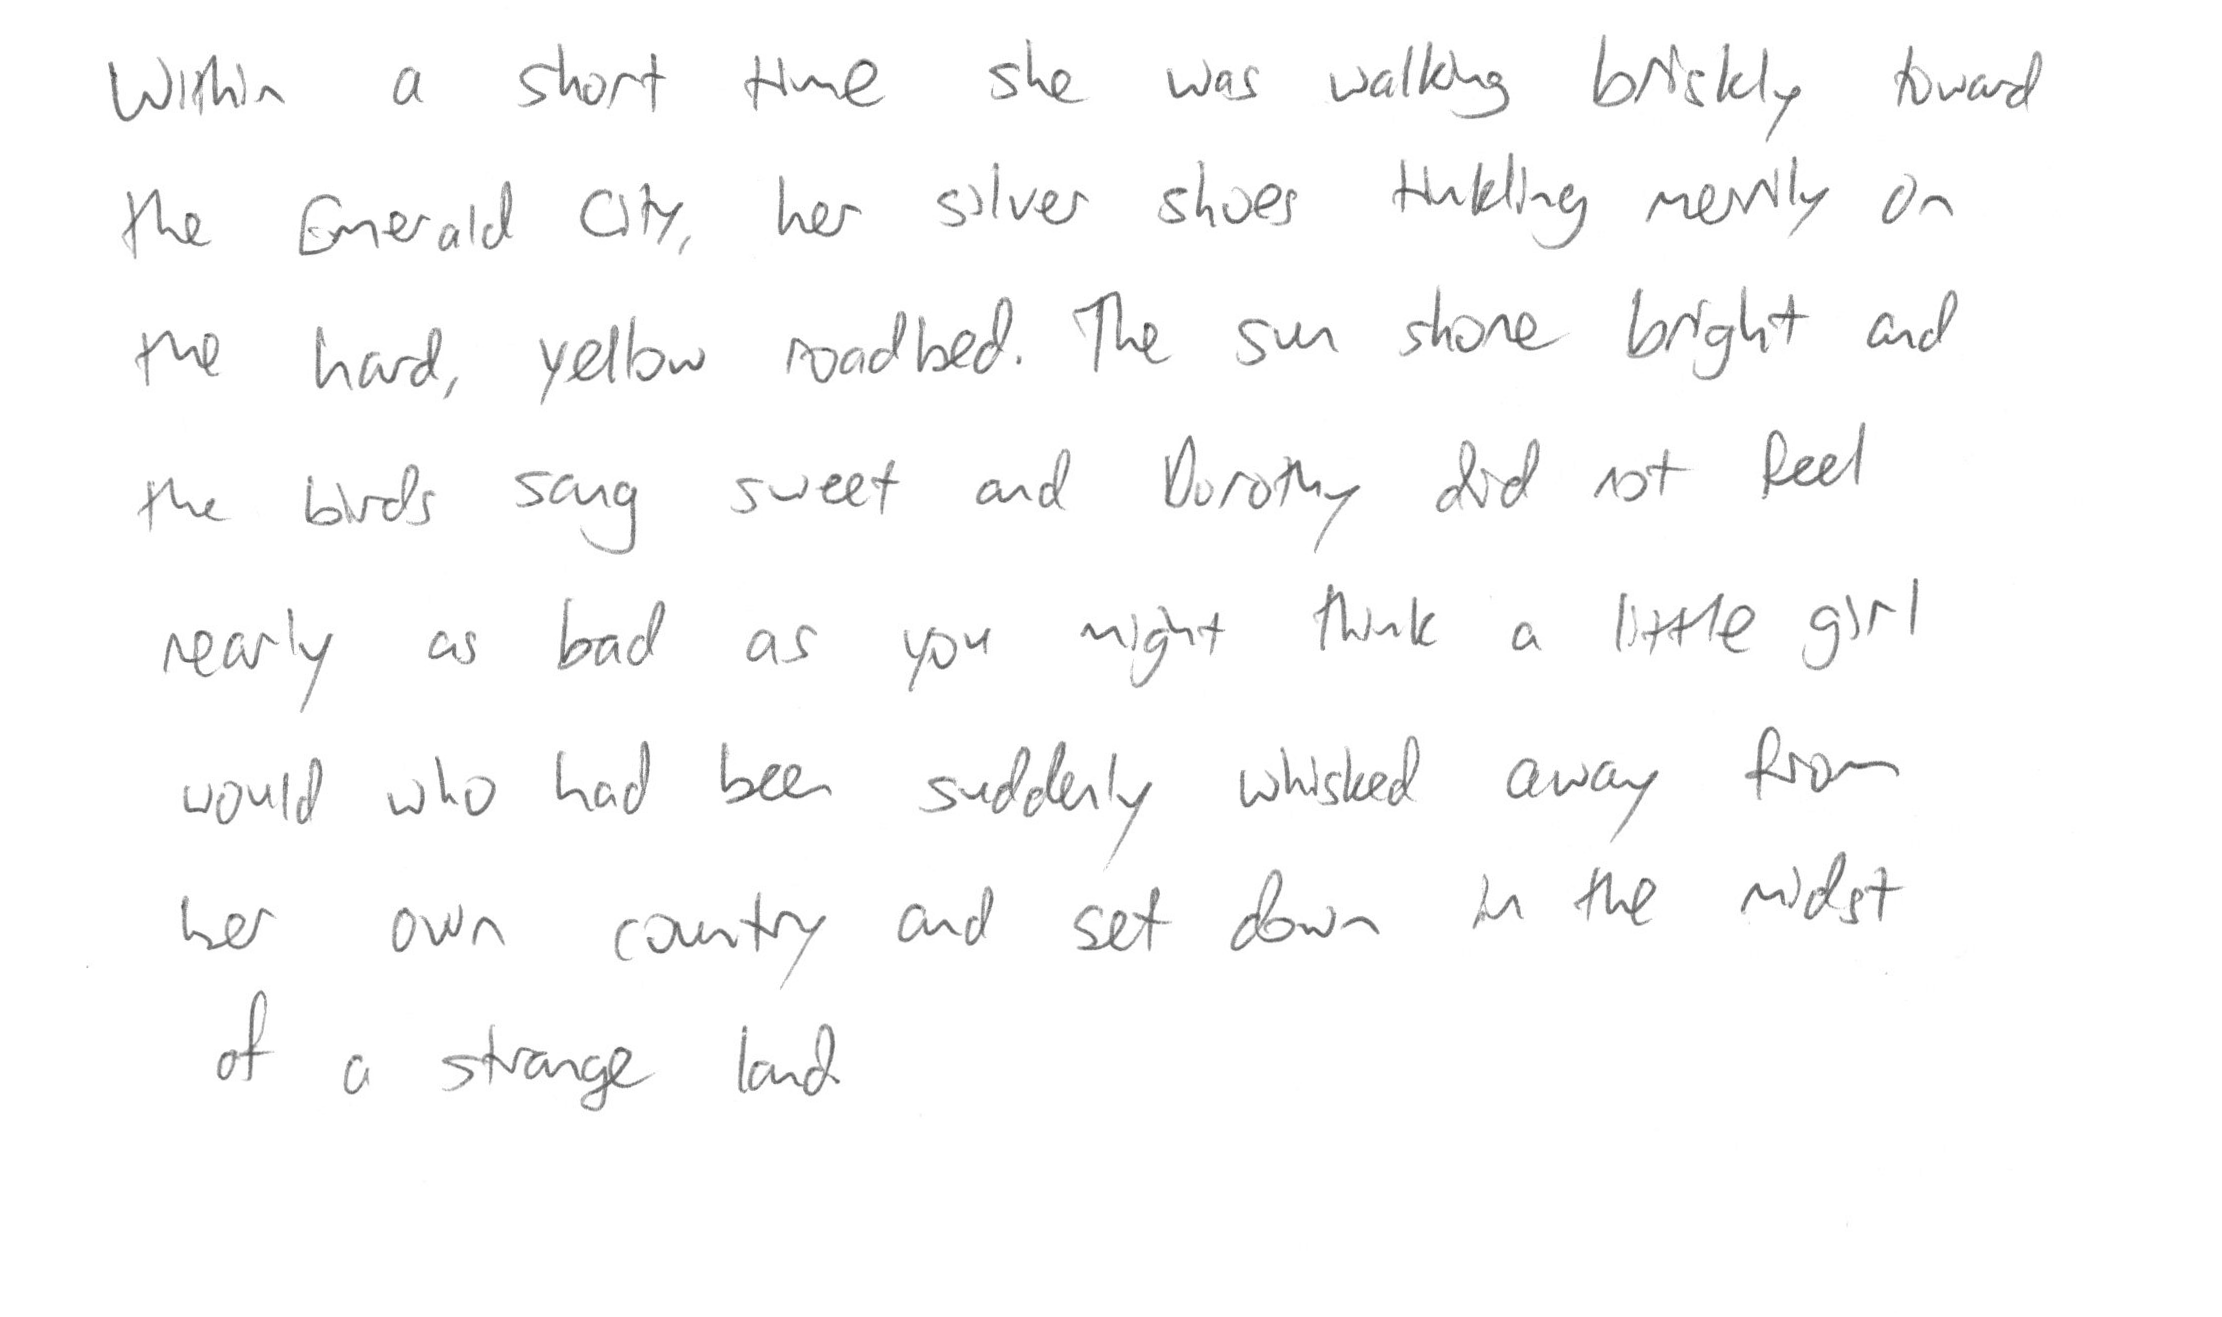 Within a short time she was walking briskly toward
the Emerald City, her silver shoes tinkling merrily on
the hard, yellow roadbed. The sun shone bright and
the birds sang sweet and Dorothy did not feel
nearly as bad as you might think a little girl
would who had been suddenly whisked away from
her own country and set down in the midst
of a strange land